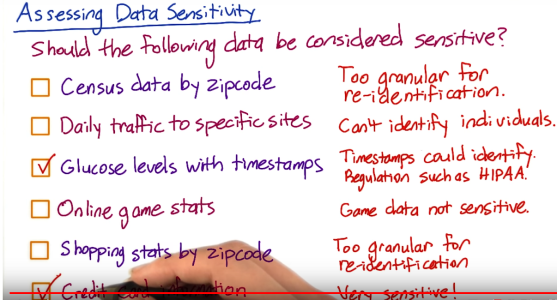 Assessing Data Sensitivity
Should the following data be considered sensitive?
Census data by zipcode
Too granular for
re-identification.
Daily traffic to specific sites
Can't identify individuals.
Glucose levels with timestamps
Timestamps could identify.
Regulation such as HIPAA.
Online game stats
Game data not sensitive.
Shopping stats by zipcode
Too granular for
re-identification
Credit
Very sensitive!